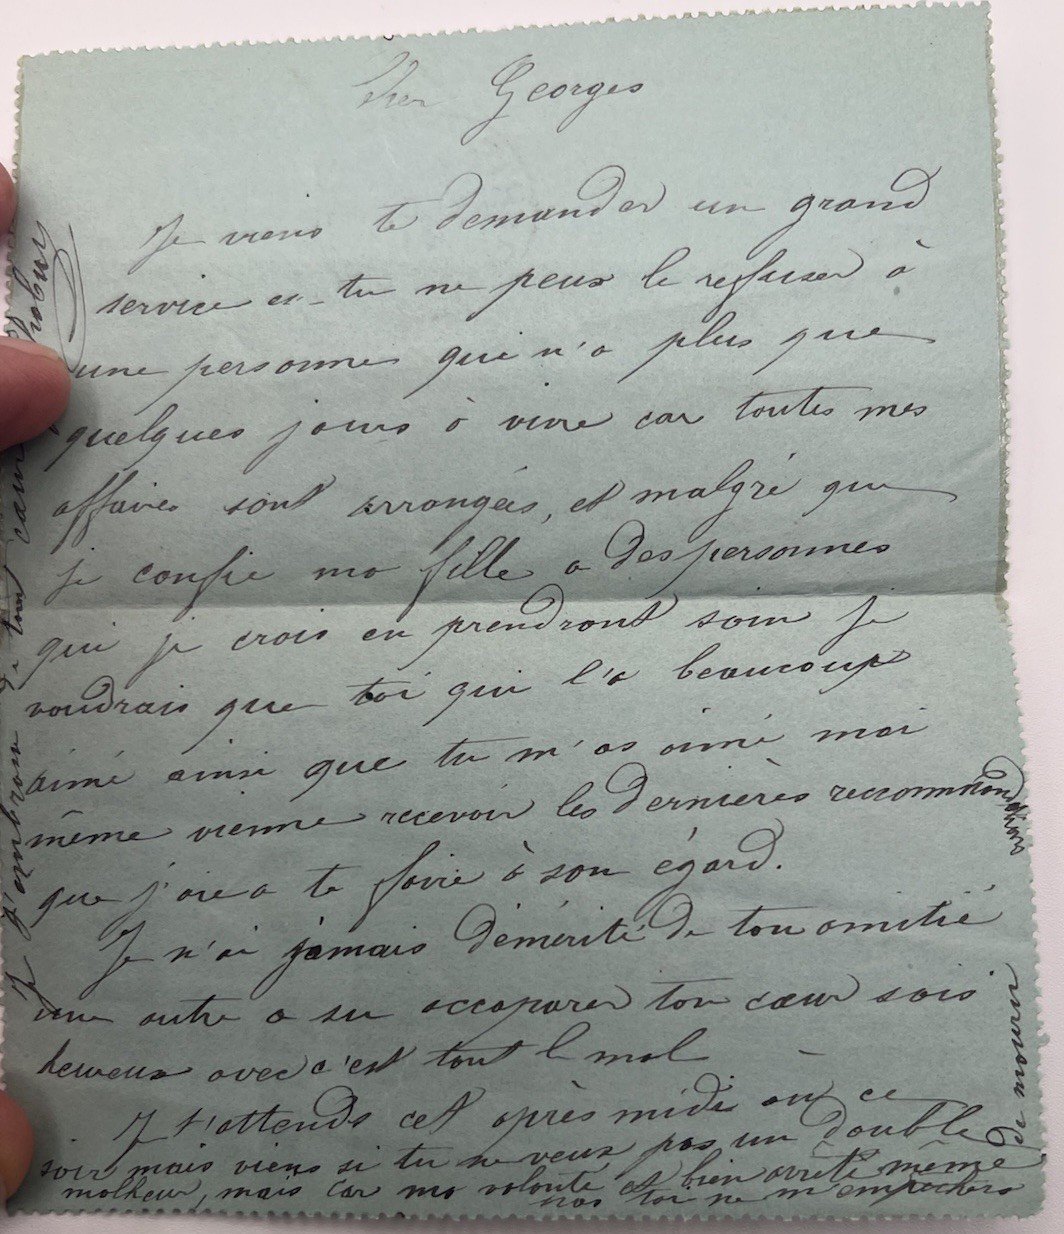 Cher Georges
Je viens te demander un grand
service et tu ne peux le refuser à
une personne qui n'a plus que
quelques jours à vivre car toutes mes
affaires sont arrangées, et malgré que
je confie ma fille a des personnes
qui je crois en prendront soin je
voudrais que toi qui l'a beaucoup
aimé ainsi que tu m'as aimé moi
même vienne recevoir les dernières recommandations
que j'aie a te faire à son égard.
Je n'ai jamais démérité de ton amitié
une autre a su accaparer ton cœur sois
heureux avec c'est tout le mal
Je t'attends cet après midi ou ce
soir mais viens si tu ne veux pas un double
malheur, mais car ma volonté est bien arrêté même
toi ne m'empêchera
de mourir
Je t'embrasse de tout cœur